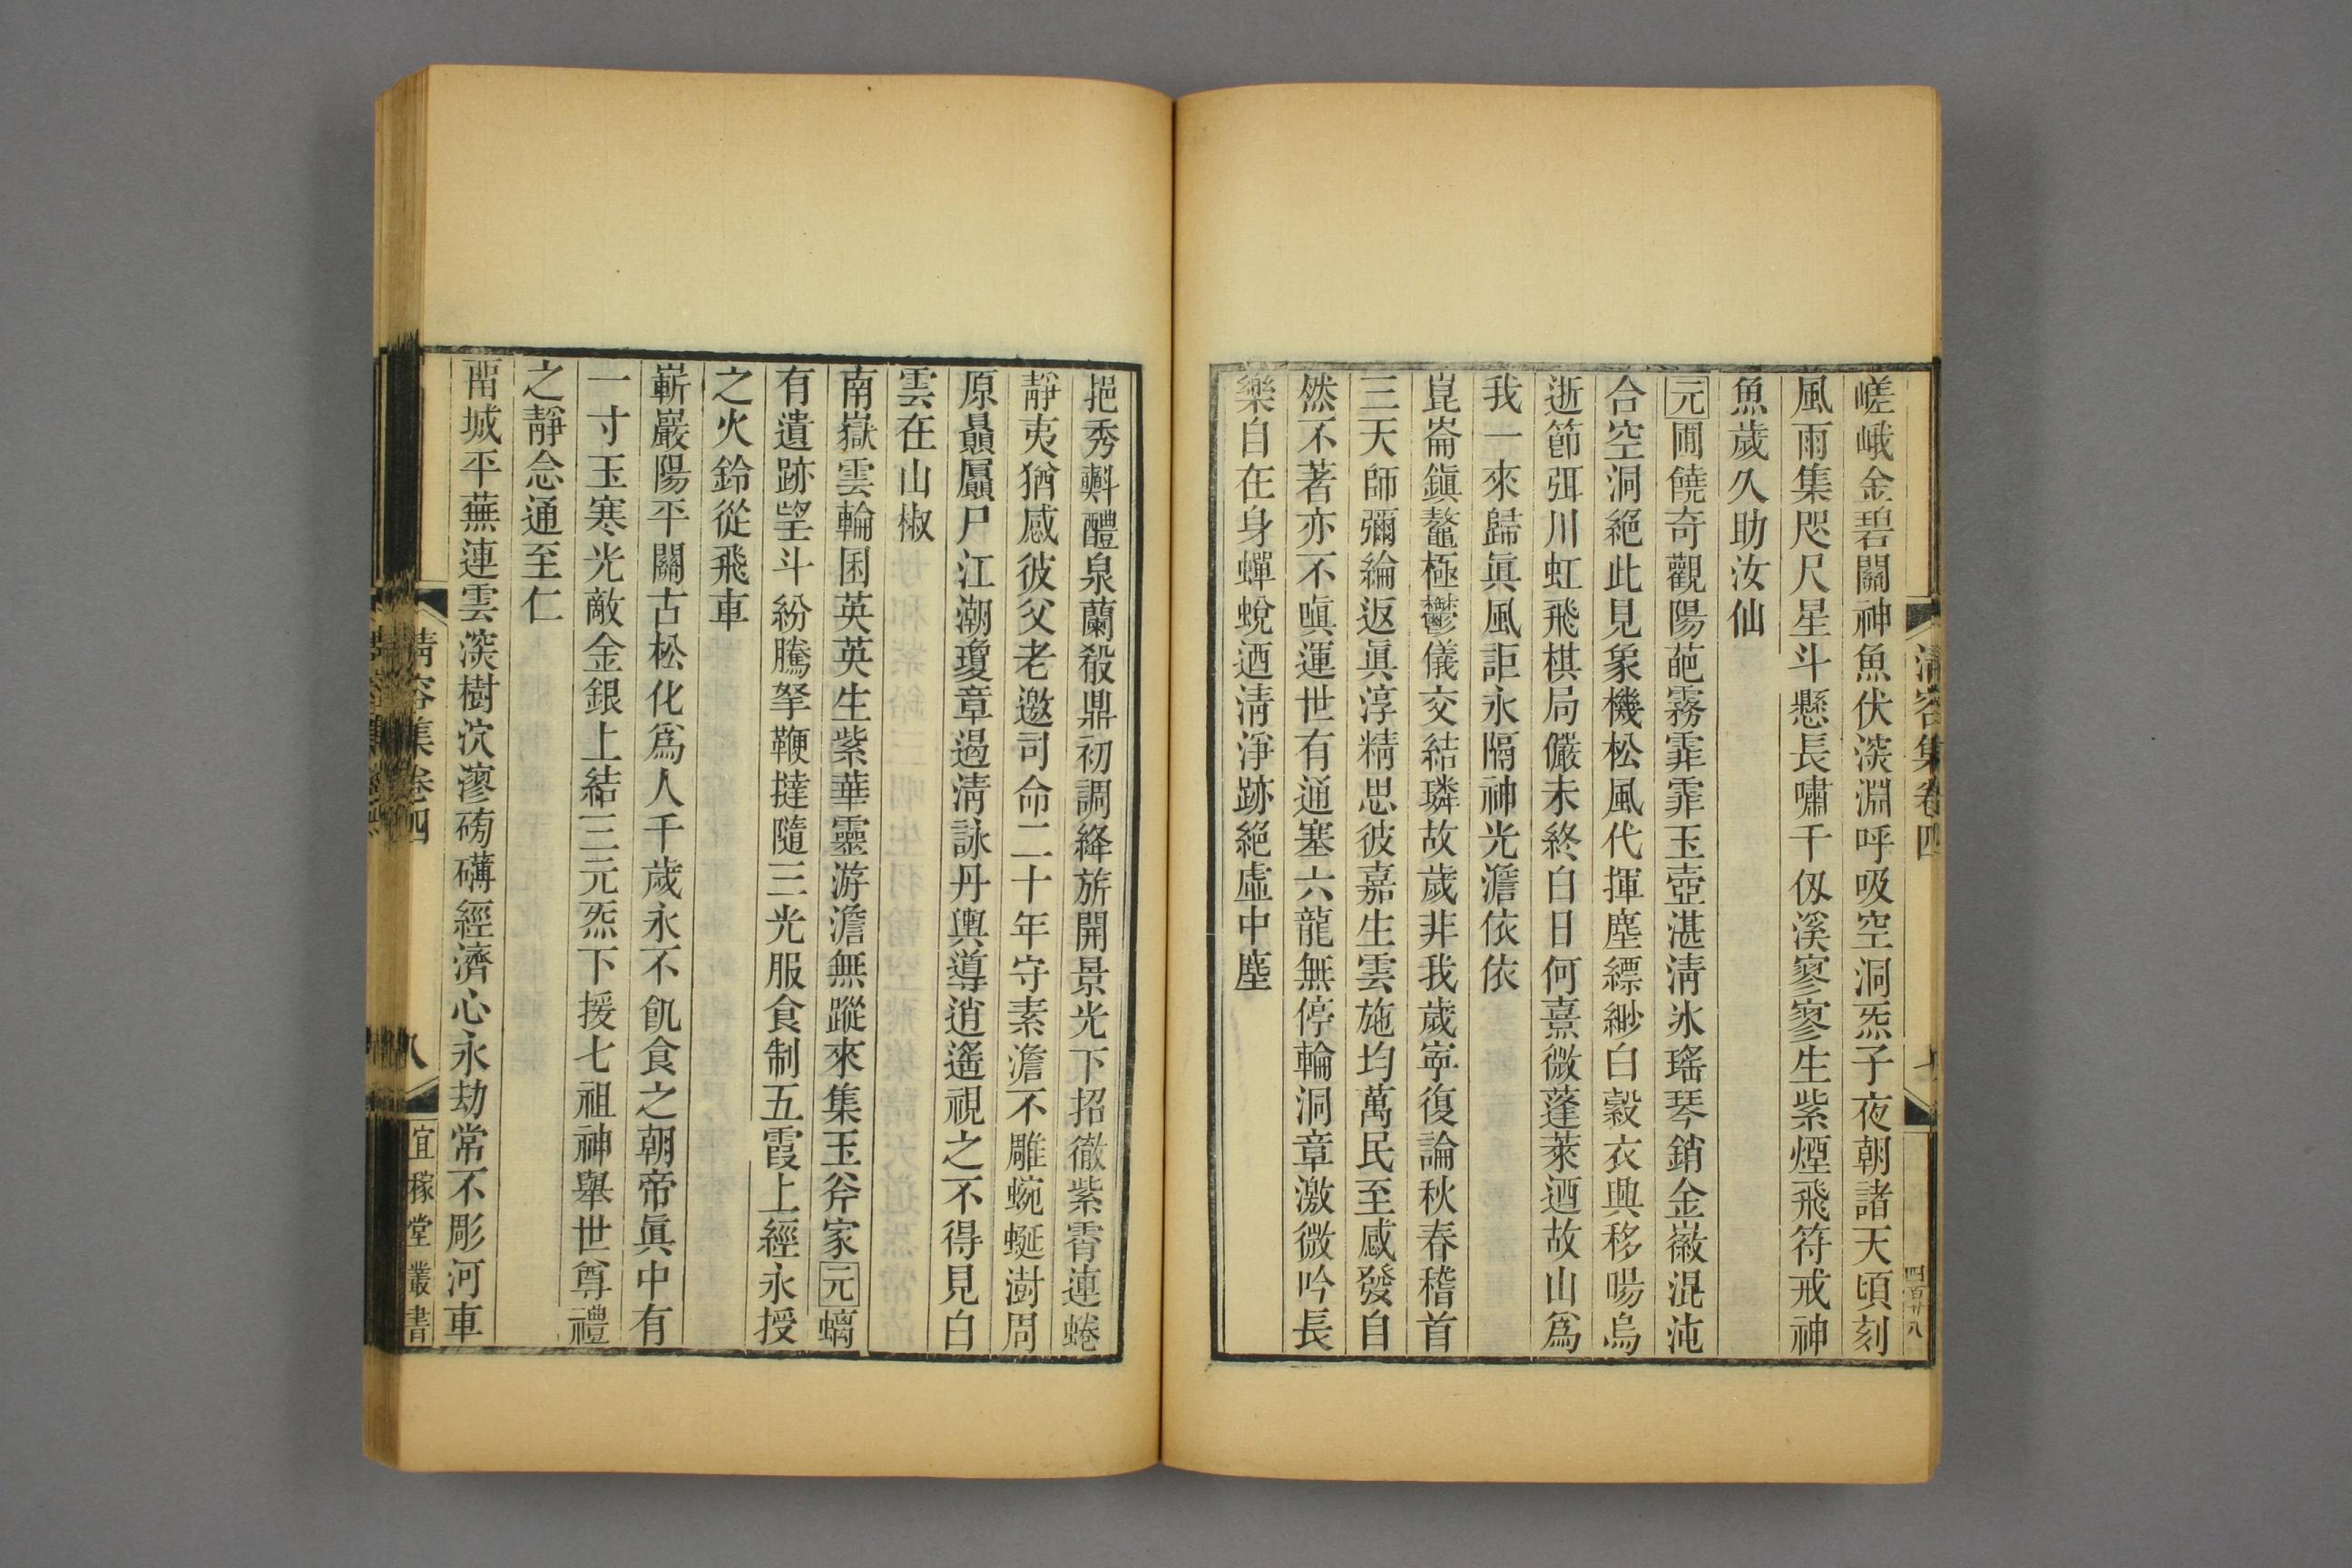 清容集卷四
七
四百廿八
嵯峨金碧闕神魚伏淡淵呼吸空洞炁子夜朝諸天頃刻
風雨集咫尺星斗懸長嘯千仭溪寥寥生紫煙飛符戒神
魚歲久助汝仙
元圃饒奇觀陽葩霧霏霏玉壺湛淸氷瑤琴銷金徽混沌
合空洞絕此見象機松風代揮塵縹緲白縠衣興移暘烏
逝節弭川虹飛棋局儼未終白日何熹微蓬萊迺故山爲
我一來歸眞風詎永隔神光澹依依
崑崙鎭鼇極鬱儀交結璘故歲非我歲寧復論秋春稽首
三天師彌綸返眞淳精思彼嘉生雲施均萬民至感發自
然不著亦不嗔運世有通塞六龍無停輪洞章激微吟長
樂自在身蟬蛻迺淸淨跡絕虛中塵
挹秀㪺醴泉蘭殽鼎初調絳旂開景光下招徹紫霄連蜷
靜夷猶感彼父老邀司命二十年守素澹不雕蜿蜒澍周
原贔屭尸江潮瓊章遏淸詠丹輿導逍遙視之不得見白
雲在山椒
南嶽雲輪囷英英生紫華靈游澹無蹤來集玉斧家元螭
有遺跡望斗紛騰拏鞭撻隨三光服食制五霞上經永授
之火鈴從飛車
嶄巖陽平闕古松化爲人千歲永不飢食之朝帝眞中有
一寸玉寒光敵金銀上結三元炁下援七祖神舉世尊禮
之靜念通至仁
畱城平蕪連雲淡樹泬漻磅礴經濟心永劫常不彫河車
清容集卷四
八
宜稼堂叢書